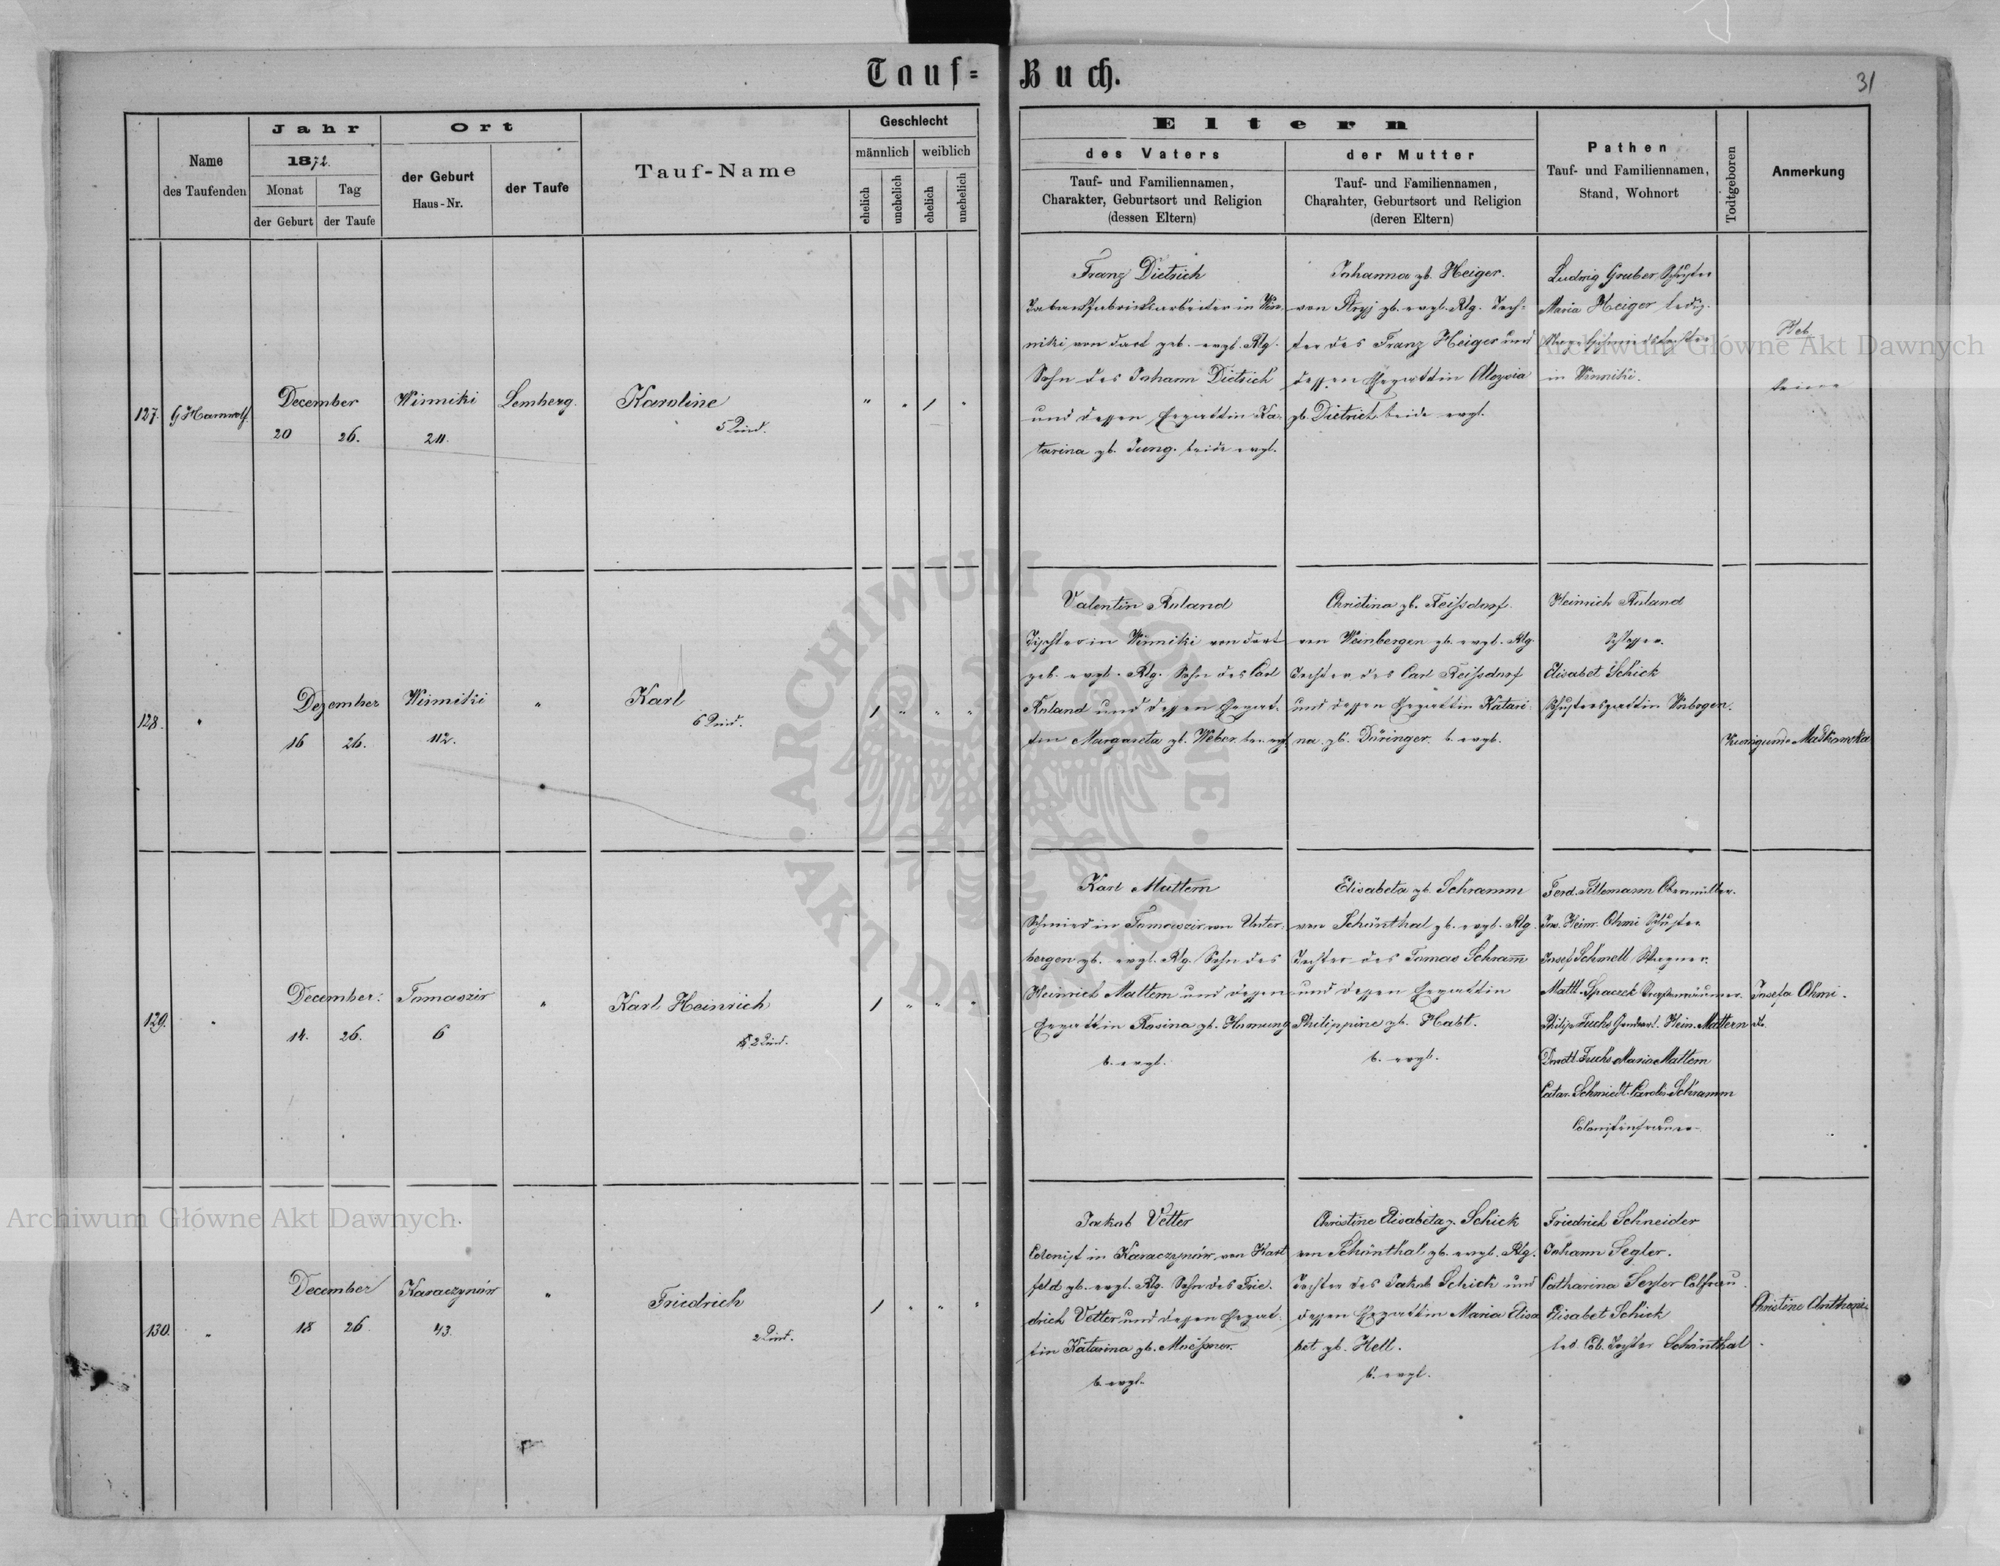 Tauf-Buch.
31
Name
des Taufenden
Jahr
1872.
Monat
der Geburt
Tag
der Taufe
Ort
der Geburt
Haus-Nr.
der Taufe
Tauf-Name
Geschlecht
männlich
weiblich
ehelich
unehelich
ehelich
unehelich
Eltern
des Vaters
Tauf- und Familiennamen,
Charakter, Geburtsort und Religion
(dessen Eltern)
der Mutter
Tauf- und Familiennamen,
Charakter, Geburtsort und Religion
(deren Eltern)
Pathen
Tauf- und Familiennamen,
Stand, Wohnort
Todtgeboren
Anmerkung
127.
December
20
26.
Winniki
211.
Lemberg.
Karoline
Franz Dietrich
Tabakfabriksarbeiter in Win-
niki von dort geb. evgl. Rlg.
Sohn des Johann Dietrich
und dessen Ehegattin Ka-
tarina gb. Jung. beide evgl.
Johanna gb. Heiger.
von Stryj gb. evgl. Rlg. Toch-
ter des Franz Heiger und
dessen Ehegattin Aloysia
gb Dietrich beide evgl.
Ludwig Gruber Schuster
Maria Heiger ledig.
in Winniki.
Heb
keine
128.
Dezember
16
26.
Winniki
112.
"
Karl
Valentin Ruland
Tischler in Winniki von dort
geb. evgl. Rlg. Sohn des Carl
Ruland und dessen Ehegat-
tin Margareta gb. Weber. be. evgl
Christina gb. Reissdorf.
von Weinbergen gb. evgl. Rlg.
Tochter des Carl Reissdorf
und dessen Ehegattin Katari-
na gb. Düringer. b. evgl.
Heinrich Ruland
Schlosser.
Elisabet Schick
Schustersgattin Wnbergen.
129.
December.
14.
26.
6
"
Karl Heinrich
Karl Mattern
Schmied in Tomaszir von Unter-
bergen gb. evgl. Rlg. Sohn des
Heinrich Mattern und dessen
Ehegattin Rosina gb. Hornung
b. evgl.
Elisabeta gb. Schramm
von Schönthal gb. evgl. Rlg.
Tochter des Tomas Schramm
und dessen Ehegattin
Philippine gb. Habt.
b. evgl.
Jos. Heinr. Ohmi Schuster
Josef Schmell Wagner.
Dorotl. Fuchs Maria Mattern
Catar. Schmiedt. Carolin Schramm
Colonistenfrauen
Josefa Ohmi.
130.
"
December
18
26
Karaczynów
43.
"
Friedrich
Jakob Vetter
Colonist in Karaczynów, von Kart
feld gb. evgl. Rlg. Sohn des Frie-
drich Vetter und dessen Ehegat-
tin Katarina gb. Meissner.
b. evgl.
Christine Elisabeta g. Schick
von Schönthal gb. evgl. Rlg.
Tochter des Jakob Schick und
dessen Ehegattin Maria Elisa
bet gb. Hell.
b. evgl.
Friedrich Schneider
Johann Segler.
Catharina Segler Colfrau
Elisabet Schick
led. Col. Tochter Schönthal
Archiwum Główne Akt Dawnych
Archiwum Główne Akt Dawnych
ARCHIWUM GŁÓWNE AKT DAWNYCH